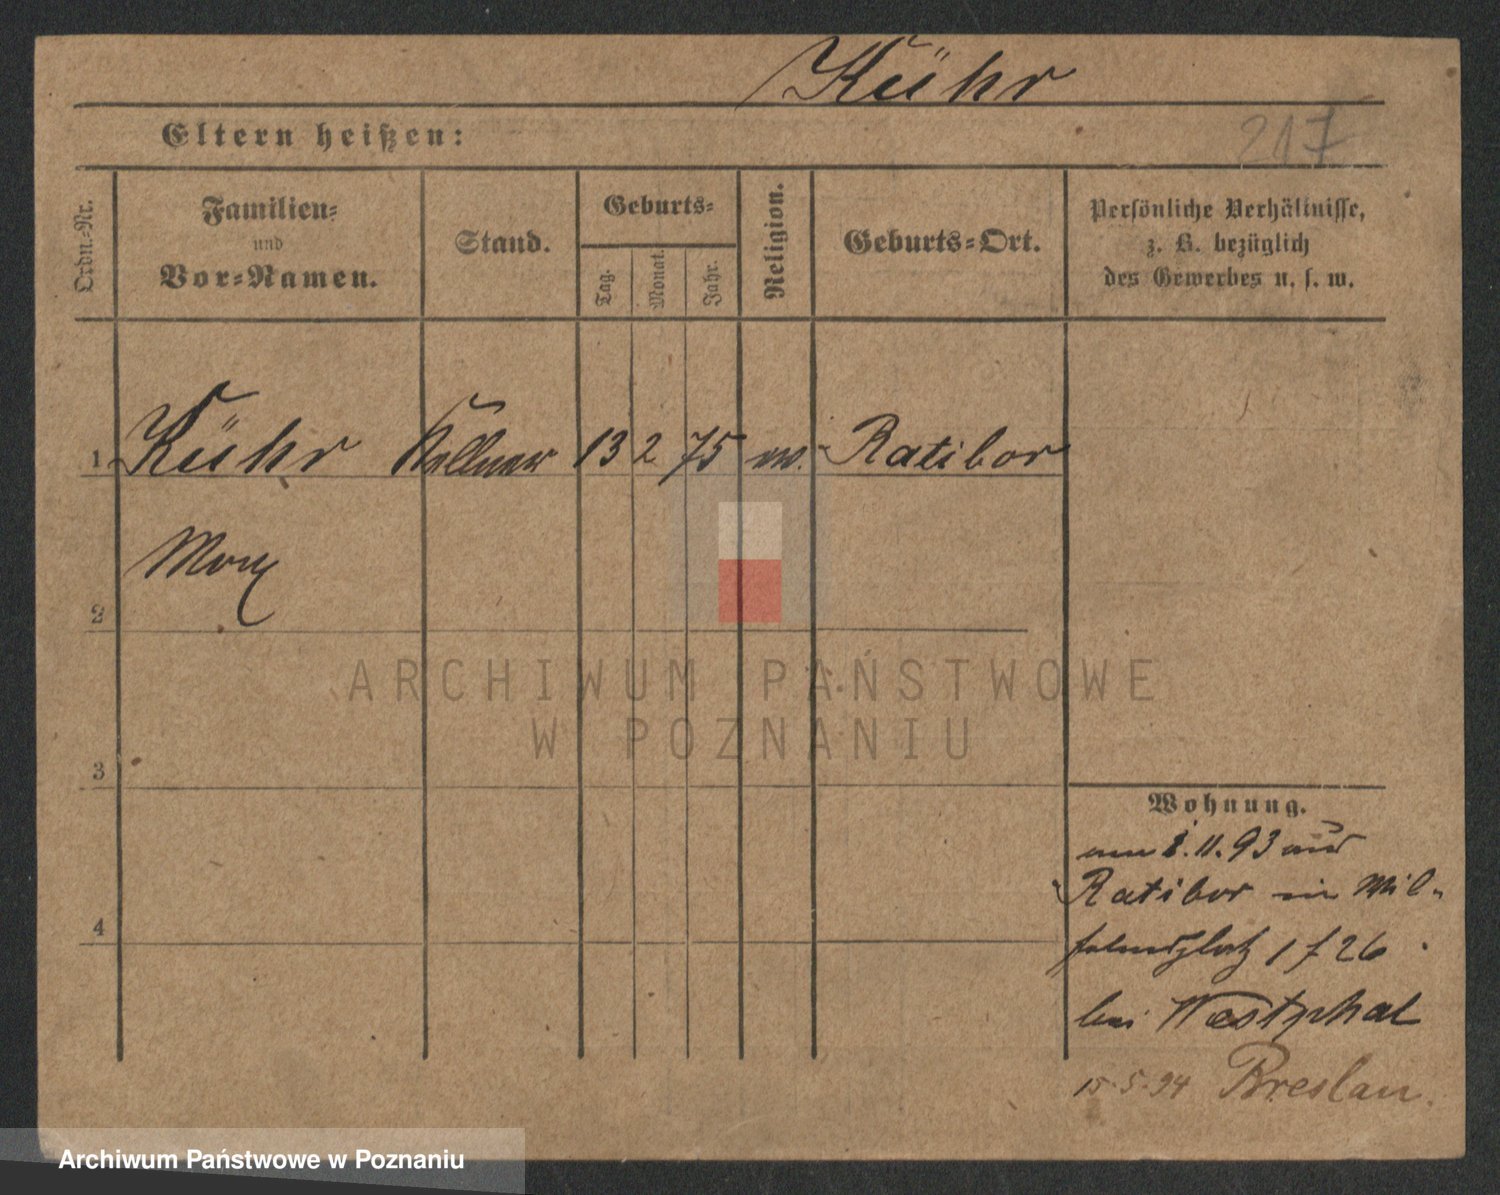 Kühr
217
Eltern heißen:
Ordn.-Nr.
Familien-
und
Vor-Namen.
Stand.
Geburts-
Tag.
Monat.
Jahr.
Religion.
Geburts-Ort.
Persönliche Verhältnisse,
z. B. bezüglich
des Gewerbes u. s. w.
1 Kühr Kellner 13 2 75 Ratibor
Max
2
3
4
Wohnung.
11. 93 aus
Ratibor in Wil-
26
bei Westphal
15.5.94 Breslau.
ARCHIWUM PAŃSTWOWE
W POZNANIU
Archiwum Państwowe w Poznaniu